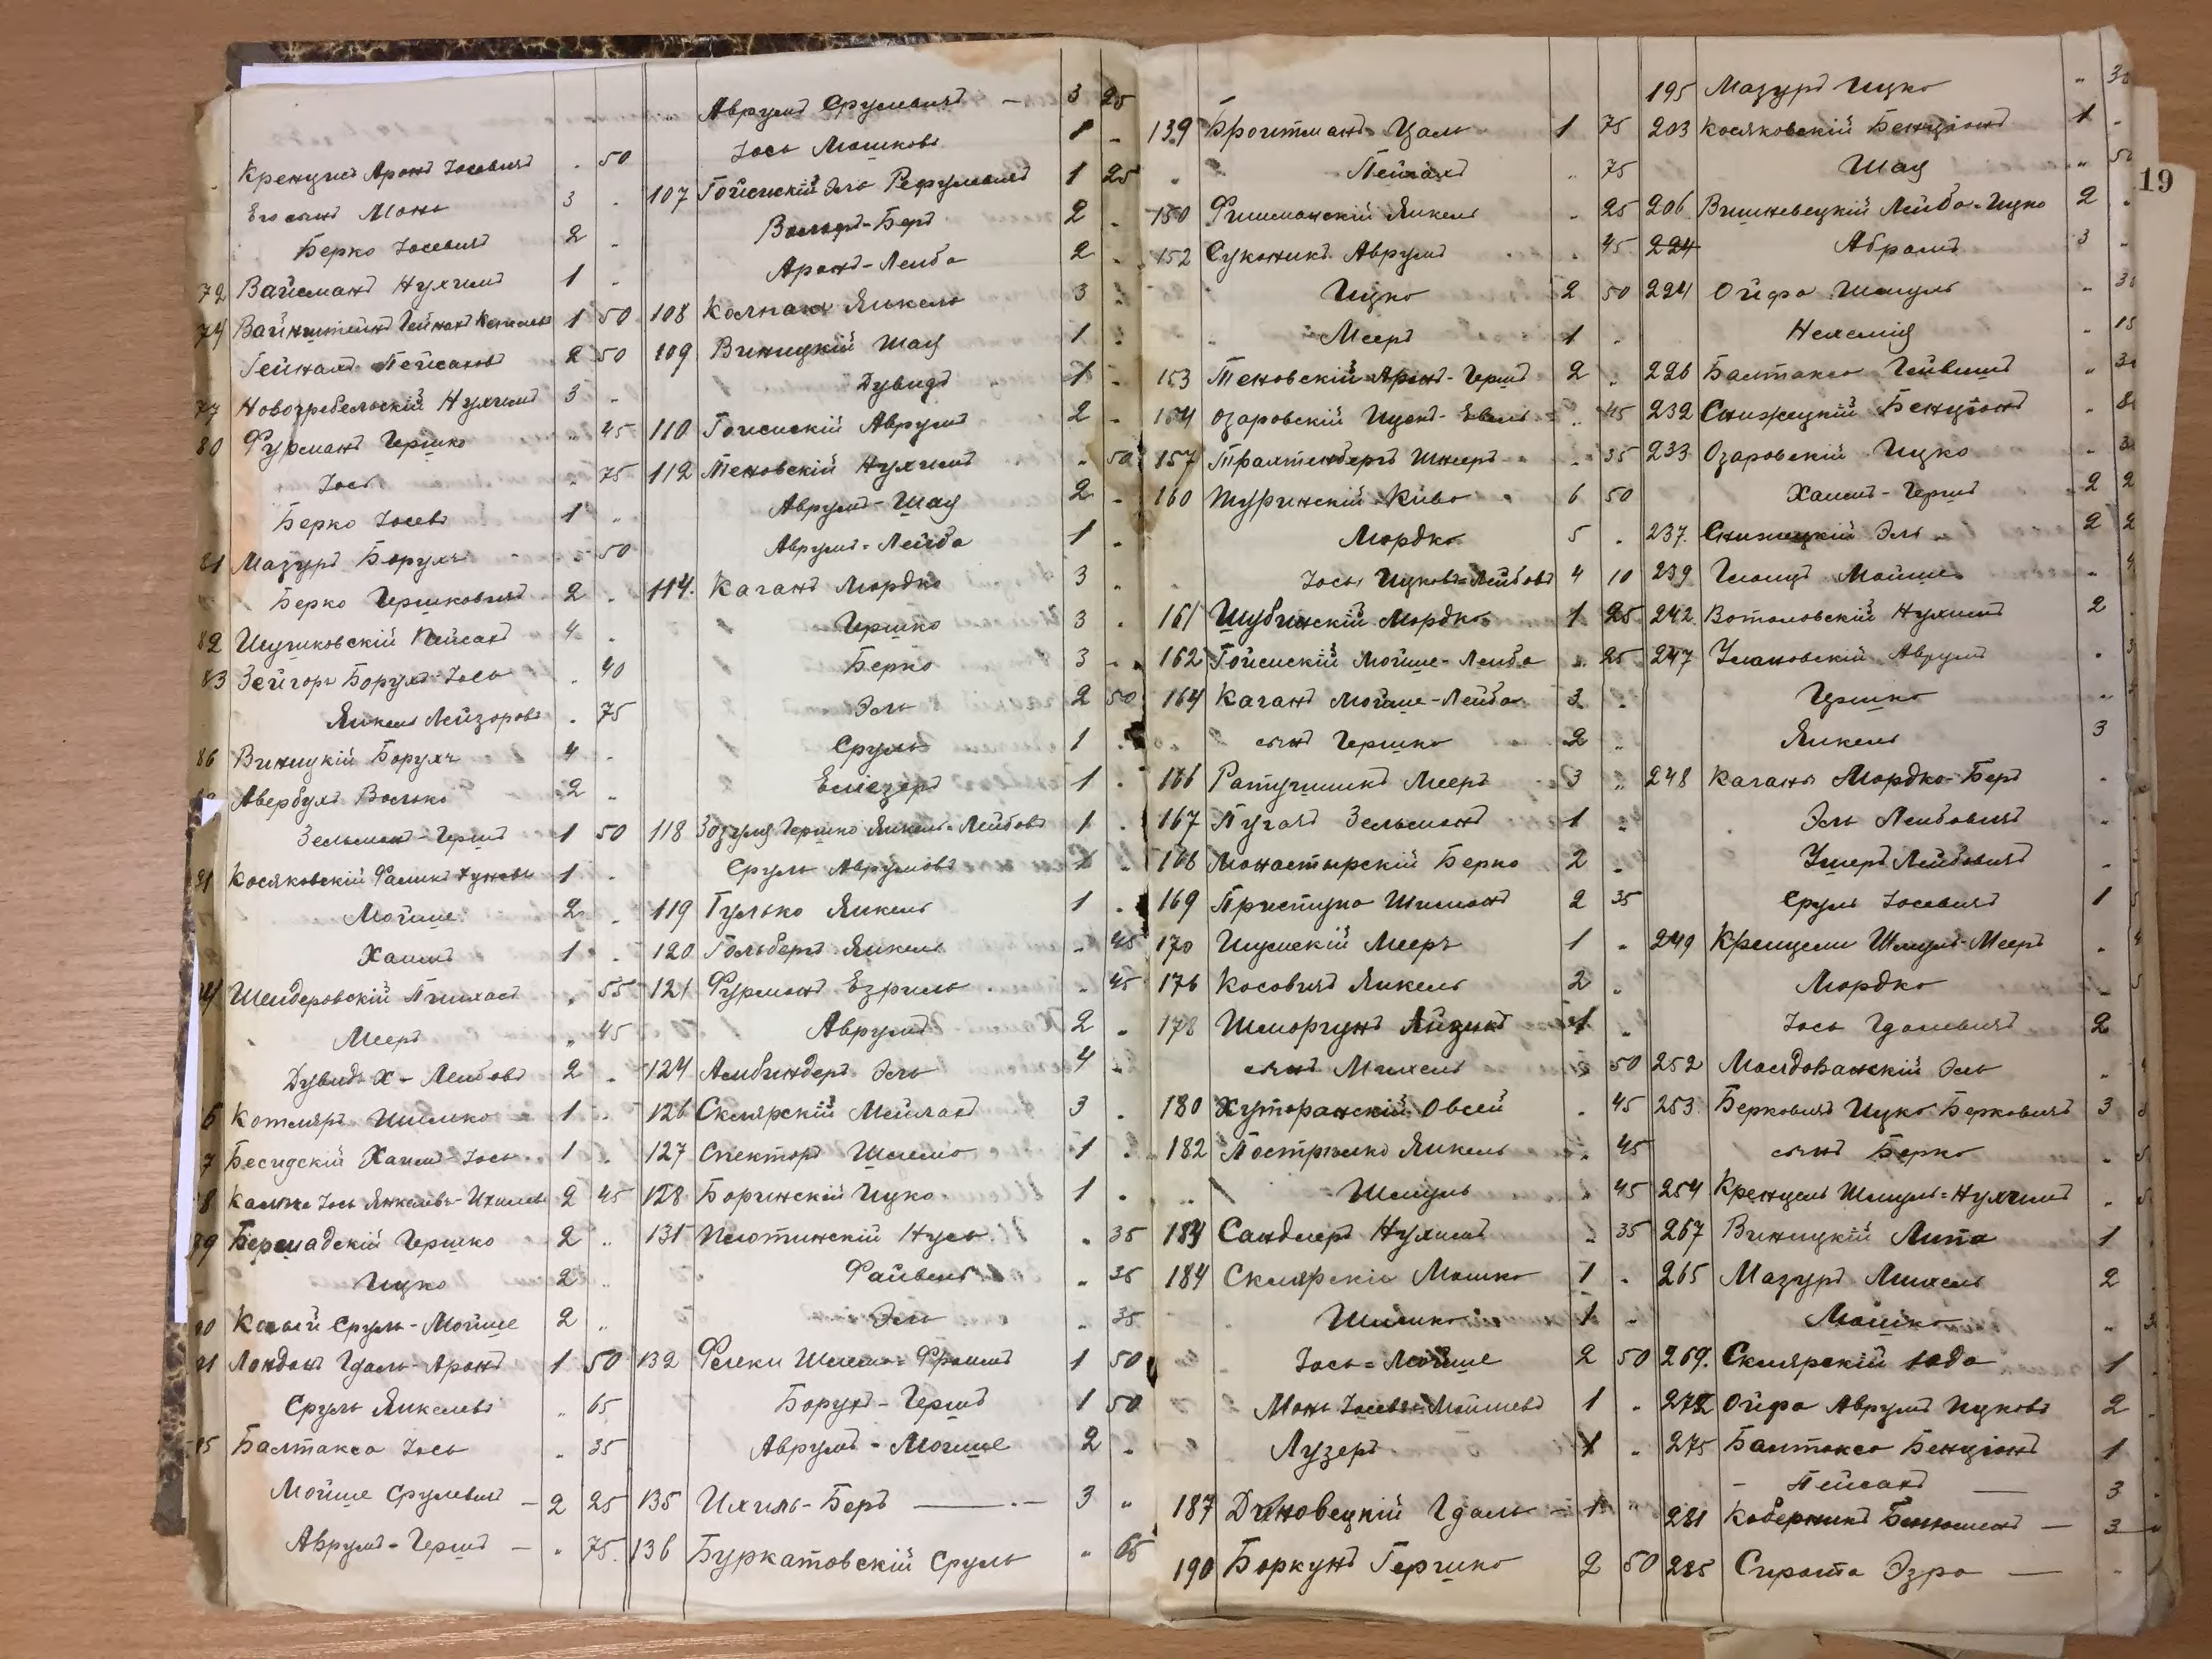 Кренцель Аронъ Іосевичъ " 50
Его сынъ Монь 3 "
Берко Іосевичъ 2 "
72 Вайсманъ Нухимъ 1 "
74 Вайнштейнъ 1 50
Пейсахов 2 50
77 Новогребельскій Нухимъ 3 "
80 Фурманъ Гершко " 45
Іось " 75
Берко Іосевъ 1 "
81 Мазуръ Борухъ " 50
Берко Гершковичъ 2 "
82 Пейсахъ 4 "
83 Борухъ-Іось " 40
Янкель Лейзоровъ " 75
86 Виницкій Борухъ 4 "
Авербухъ Волько 2 "
Зельманъ-Гершъ 1 50
91 Косяковскій 1 "
Мойше 2 "
Хаимъ 1 "
Шендеровскій Пинхасъ " 55
Мееръ " 45
Дувидъ-Х-Лейбовъ 2 "
Котляръ Шимко 1 "
7 Бесидскій Хаимъ-Іось 1 "
8 Іось 2 45
Бершадскій Гершко 2 "
Ицко 2 "
Сруль-Мойше 2 "
Лондонъ Гдаль-Аронъ 1 50
Сруль Янкелевъ " 65
Балтакса Іось " 35
Мойше Срулевичъ — 2 25
Аврумъ-Гершъ — " 75
Аврумъ Срулевичъ — 3 25
Іось Мошковъ 1 "
107 Гойсискій Эль Рефулевичъ 1 25
Вольфъ-Беръ 2 "
Аронъ-Лейба 2 "
108 Колпакъ Янкель 3 "
109 Виницкій Шая 1 "
Дувидъ 1 "
110 Гойсискій Аврумъ 2 "
112 Теновскій Нухимъ " 50
Аврумъ-Шая 2 "
Аврумъ-Лейба 1 "
114. Каганъ Мордко 3 "
Гершко 3 "
Берко 3 "
Эль 2 50
Сруль 1 "
Еліезеръ 1 "
118 Зозуля Гершко Янкель-Лейбовъ 1 "
Сруль Аврумовъ 1 "
119 Гулько Янкель 1 "
120 Гольберъ Янкель " 45
121 Фурманъ Езриль " 45
Аврумъ 2 "
124 Альбиндеръ Эль 4 "
126 Склярскій Мейлахъ 3 "
127 Спекторъ Шлемо 1 "
128 Боринскій Ицко 1 "
131 Плотинскій Нусь " 35
Файвель " 35
Эль " 35
132 Шлема-Фроимъ 1 50
Борухъ-Гершъ 1 50
Аврумъ-Мойше 2 "
135 Ихиль-Беръ — 3 "
136 Буркатовскій Сруль " 65
139 Бройтманъ Цаль 1 75
Пейсахъ " 75
150 Фишманскій Янкель " 25
152 Суконикъ Аврумъ " 45
Ицко 2 50
Мееръ 1 "
153 Теновскій Аронъ-Гершъ 2 "
154 Озаровскій Ицекъ-Евель " 45
157 Трахтенбергъ Шнееръ " 35
160 Туринскій Киво 6 50
Мордко 5 "
Іось Ицковъ-Лейбовъ 4 10
161 Шубинскій Мордко 1 25
162 Гойсискій Мойше-Лейба " 25
164 Каганъ Мойше-Лейба 3 "
сынъ Гершко 2 "
166 Ратушникъ Мееръ 3 "
167 Пугачъ Зельманъ 1 "
168 Монастырскій Берко 2 "
169 Приступа Шимонъ 2 35
170 Шумскій Мееръ 1 "
176 Косовичъ Янкель 2 "
178 Шморгунъ Айзикъ 1 "
сынъ Михель " 50
180 Хуторанскій Овсей " 45
182 Янкель " 45
Шмуль " 45
184 Сандлеръ Нухимъ " 35
184 Склярскій Мошко 1 "
Шимко 1 "
Іось-Мойше 2 50
Монь Іосевъ-Мойшевъ 1 "
Лузеръ 1 "
187 Диновецкій Гдаль — 1 "
190 Боркунъ Гершко 2 50
195 Мазуръ Ицко "
203 Косяковскій Бенціонъ 1 "
Шая "
206 Вишневецкій Лейба-Ицко 2 "
224 Абрамъ 3 "
224 Ойфа Шмуль "
Нехемія " 15
226 Балтакса Лейвишъ "
232 Снижецкій Бенціонъ "
233 Озаровскій Ицко "
Хаимъ-Гершъ 2
237. Снижецкій Эль 2
239 Мойше "
242 Нухимъ 2
247 Улановскій Аврумъ "
Гершко "
Янкель 3
248 Каганъ Мордко-Беръ "
Эль Лейбовичъ "
Ушеръ Лейбовичъ "
Сруль Іосевичъ 1
249 Кренцель Шмуль-Мееръ "
Мордко "
Іось Гдалевичъ 2
252 Молдованскій Эль "
253. Берковичъ Ицко Берковичъ 3
сынъ Берко "
254 Кренцель Шмуль-Нухимъ "
267 Виницкій Липа 1
265 Мазуръ Михель 2
Мошко "
269. Склярскій Іода 1
272 Ойфа Аврумъ Ицковъ 2
275 Балтакса Бенціонъ 1
— Пейсахъ — 3
281 Коберникъ Беньюменъ — 3
285 Сирота Эзра — "
19